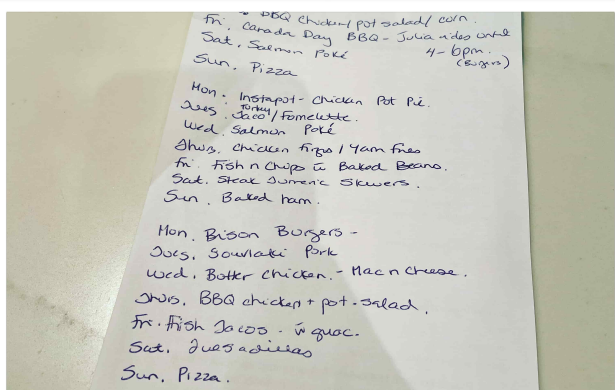 BBQ Chicken/ pot salad/ corn.
Fri. Canada Day BBQ - Julia rides until
4-6pm.
(Burgers)
Sat. Salmon Poké
Sun. Pizza
Mon. Instapot - Chicken Pot Pie.
Turkey
Tues. Taco / Fomelette.
Wed. Salmon Poké
Thurs. Chicken fings / Yam Fries
Fri. Fish n Chips w Baked Beans.
Sat. Steak Tumeric Skewers.
Sun. Baked ham.
Mon. Bison Burgers -
Tues. Souvlaki Pork
Wed. Butter Chicken. - Mac n Cheese.
Thurs. BBQ chicken + pot. salad.
Fri. Fish Tacos - w guac.
Sat. Quesadillas
Sun. Pizza.